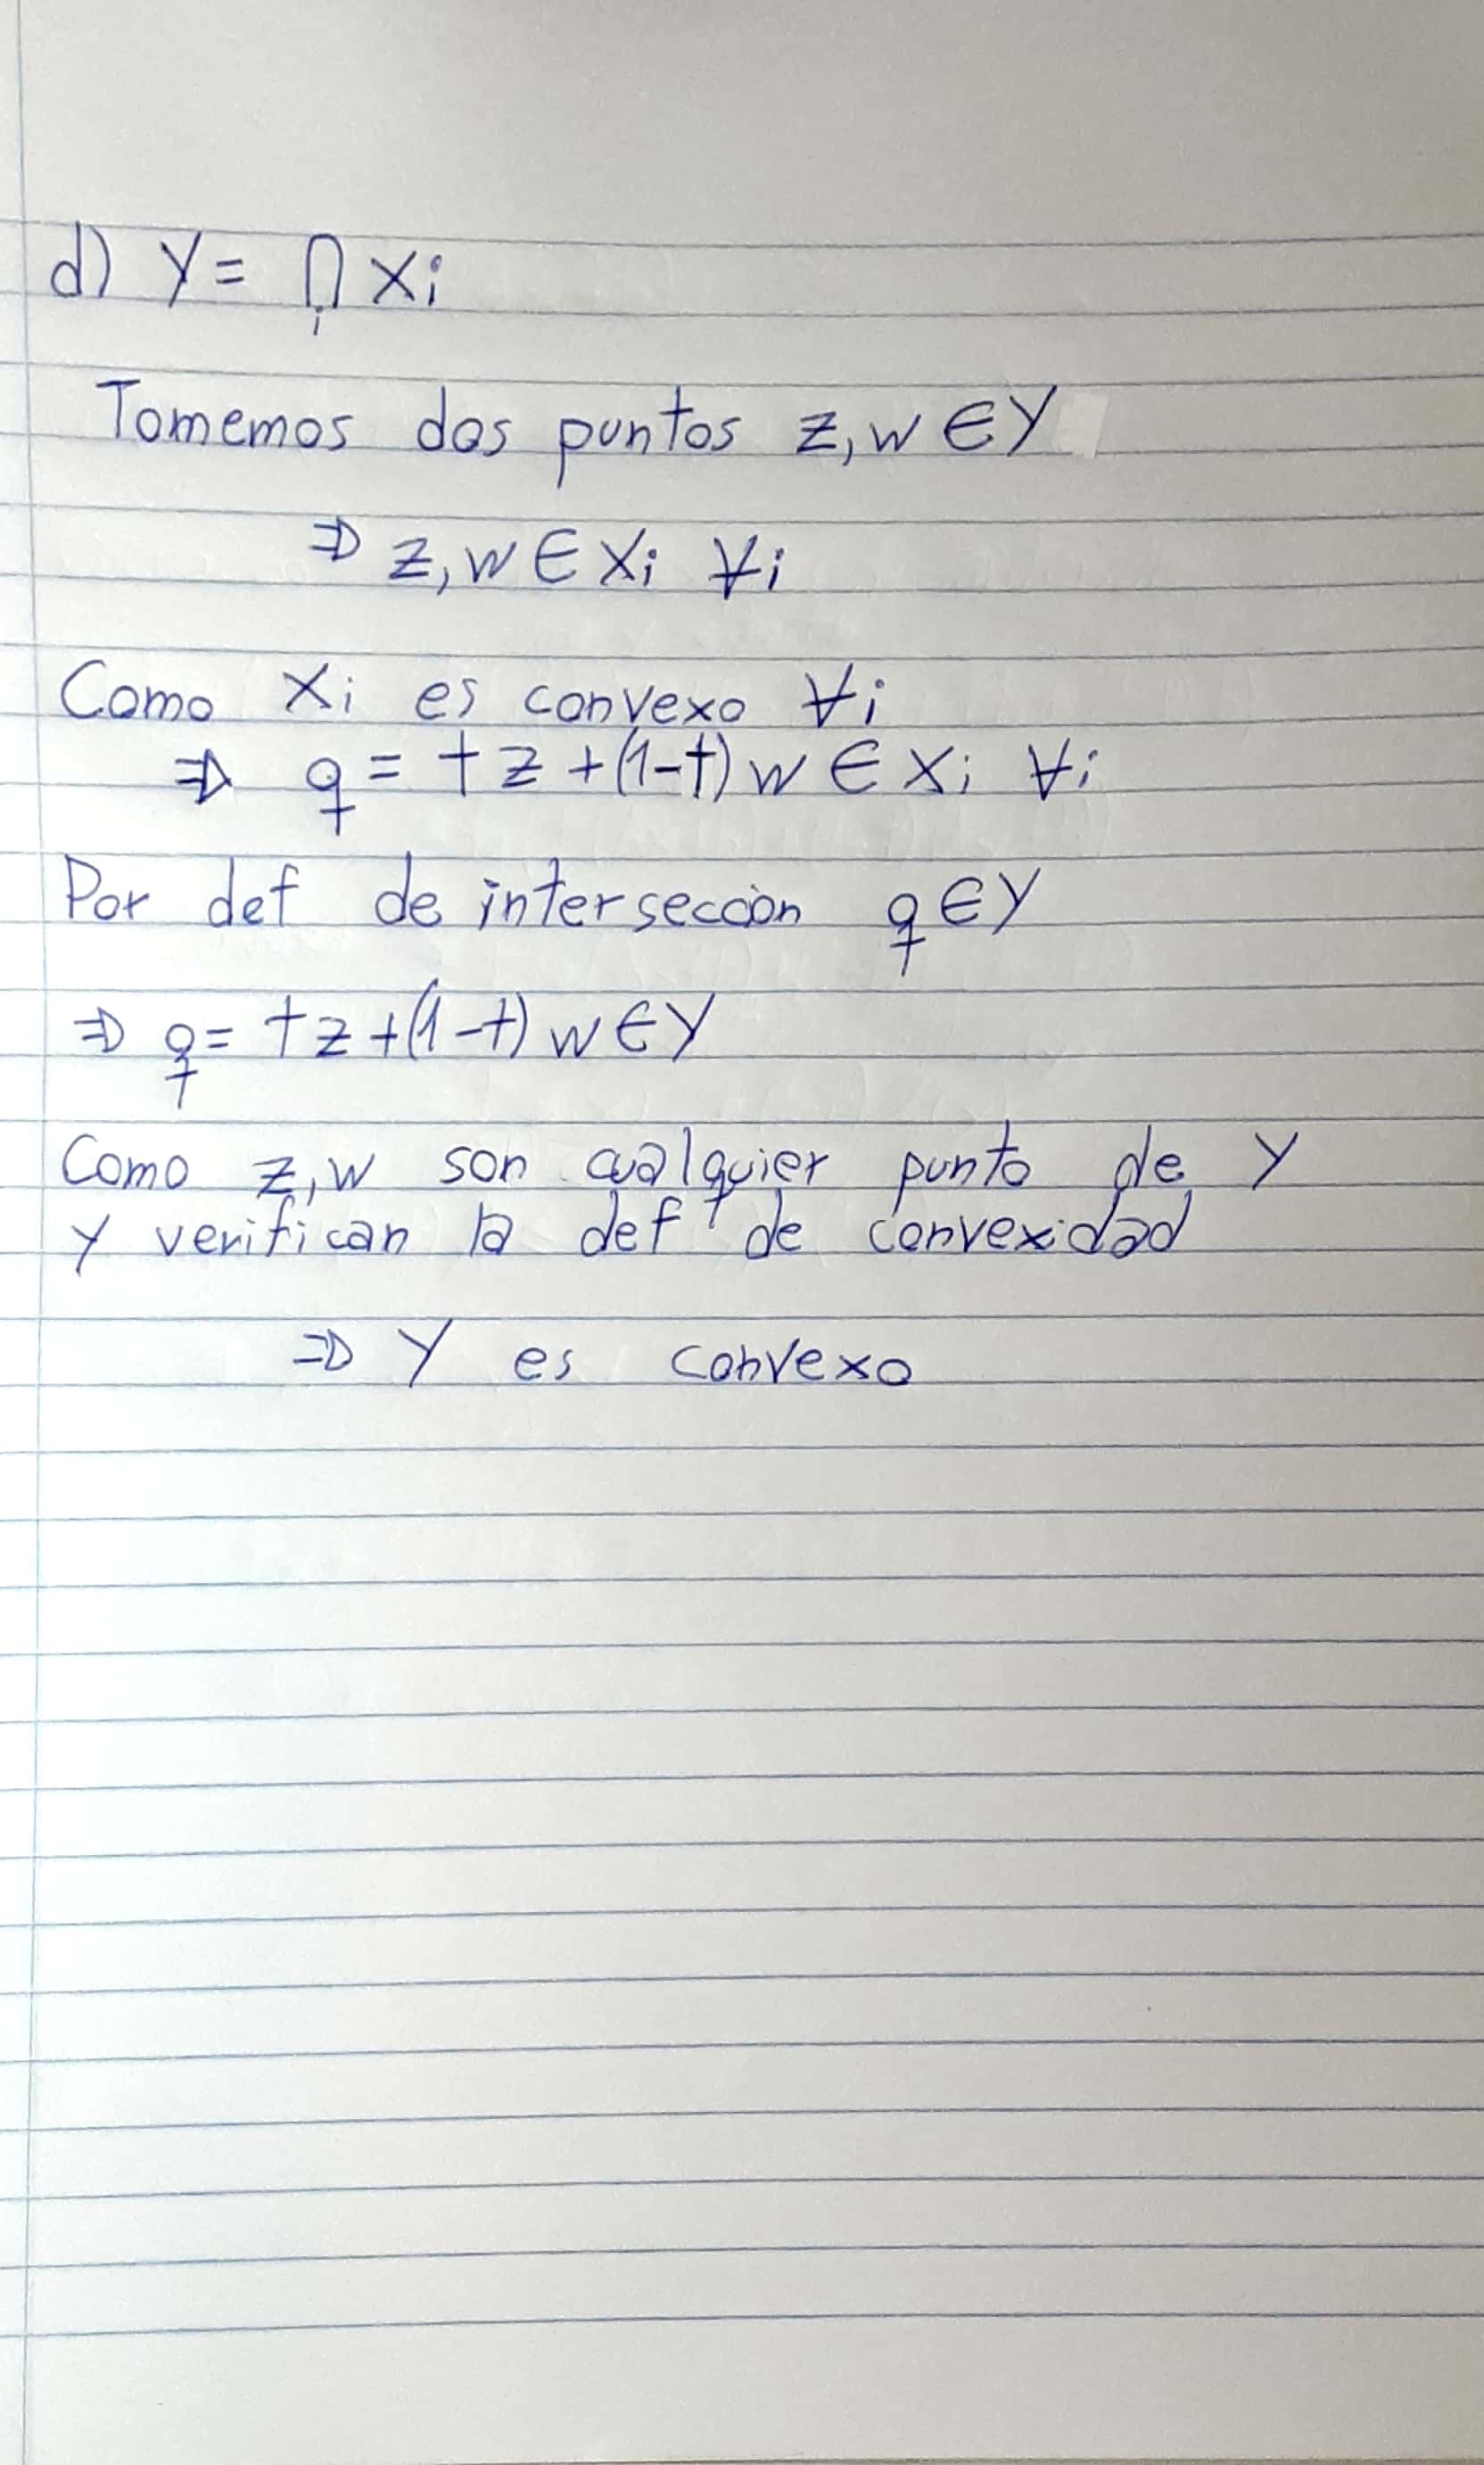 d) Y = ⋂ Xi
i
Tomemos dos puntos z, w ∈ Y
⇒ z, w ∈ Xi ∀i
Como Xi es convexo ∀i
⇒ q = t z + (1-t) w ∈ Xi ∀i
Por def de intersección q ∈ Y
⇒ q = t z + (1-t) w ∈ Y
Como z, w son cualquier punto de Y
y verifican la def de convexidad
⇒ Y es convexo